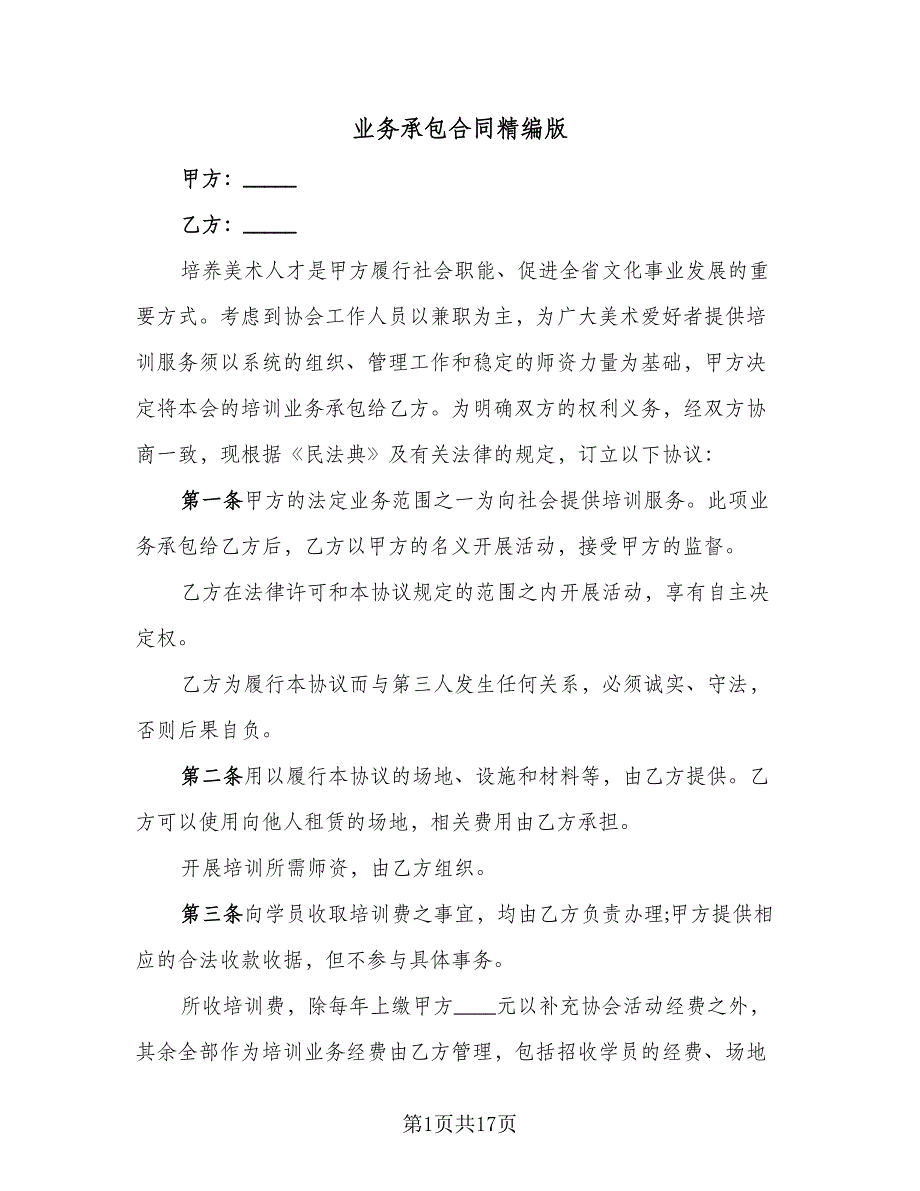 业务承包合同精编版
甲方：_____
乙方：_____
培养美术人才是甲方履行社会职能、促进全省文化事业发展的重
要方式。考虑到协会工作人员以兼职为主，为广大美术爱好者提供培
训服务须以系统的组织、管理工作和稳定的师资力量为基础，甲方决
定将本会的培训业务承包给乙方。为明确双方的权利义务，经双方协
商一致，现根据《民法典》及有关法律的规定，订立以下协议：
第一条甲方的法定业务范围之一为向社会提供培训服务。此项业
务承包给乙方后，乙方以甲方的名义开展活动，接受甲方的监督。
乙方在法律许可和本协议规定的范围之内开展活动，享有自主决
定权。
乙方为履行本协议而与第三人发生任何关系，必须诚实、守法，
否则后果自负。
第二条用以履行本协议的场地、设施和材料等，由乙方提供。乙
方可以使用向他人租赁的场地，相关费用由乙方承担。
开展培训所需师资，由乙方组织。
第三条向学员收取培训费之事宜，均由乙方负责办理;甲方提供相
应的合法收款收据，但不参与具体事务。
所收培训费，除每年上缴甲方____元以补充协会活动经费之外，
其余全部作为培训业务经费由乙方管理，包括招收学员的经费、场地
第1页共17页